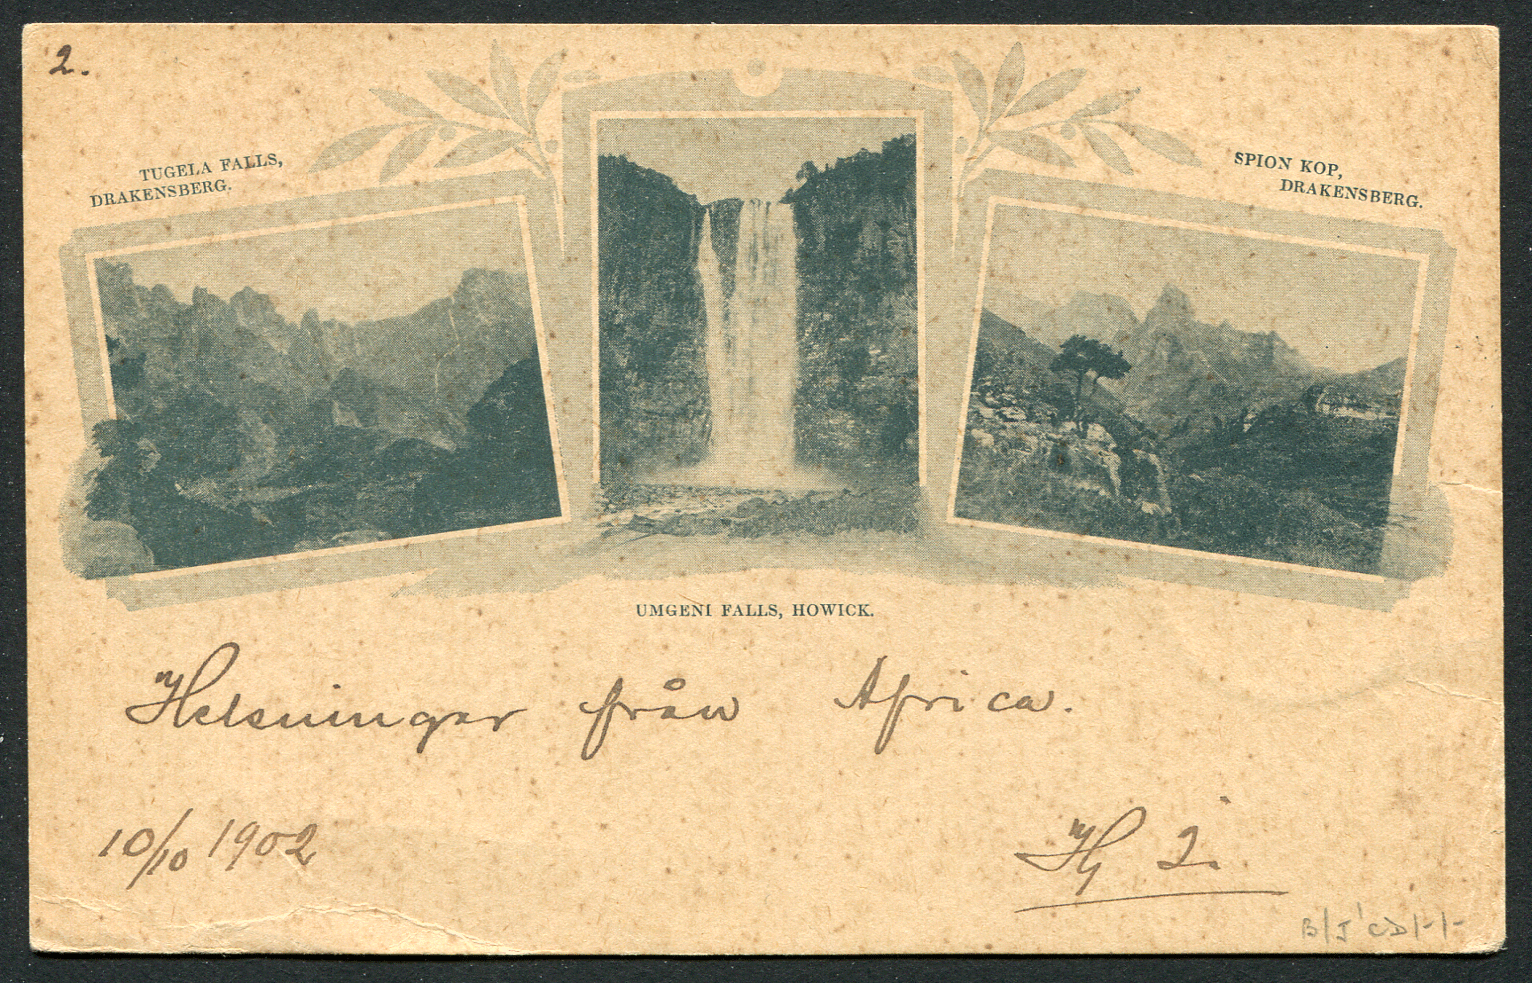 2.
TUGELA FALLS,
DRAKENSBERG.
SPION KOP,
DRAKENSBERG.
UMGENI FALLS, HOWICK.
Helsningar från Africa.
10/10 1902
Hj